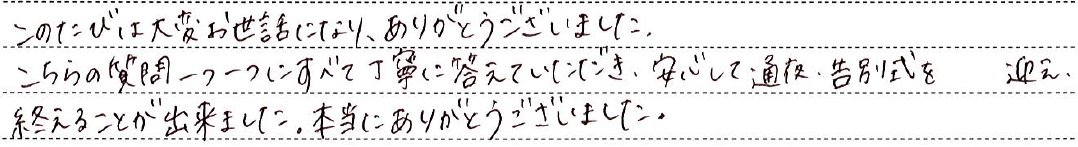 このたびは大変お世話になり、ありがとうございました。
こちらの質問一つ一つにすべて丁寧に答えていただき、安心して通夜・告別式を 迎え、
終えることが出来ました。本当にありがとうございました。